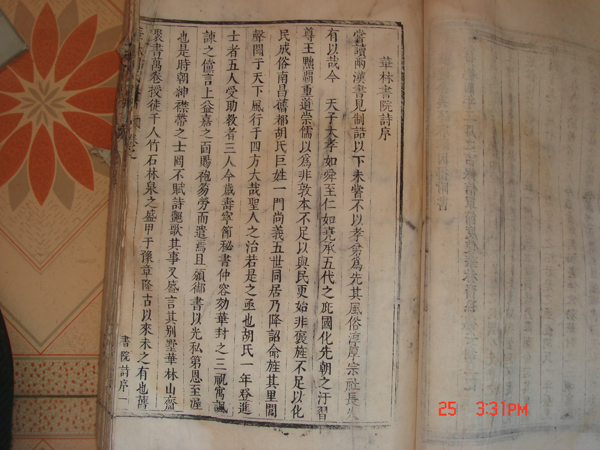 華林書院詩序
嘗讀兩漢書見制誥以下未嘗不以孝弟為先其風俗淳厚宗社長久
有以哉今 天子大孝如舜至仁如堯承五代之庇國化先朝之汙習
尊王黜霸重道崇儒以為非敦本不足以與民更始非褒旌不足以化
民成俗南昌舊都胡氏巨姓一門尚義五世同居乃降詔命旌其里閭
聲聞于天下風行于四方大哉聖人之治若是之亟也胡氏一年登進
士者五人受助教者三人今歲壽寧節秘書仲容効華封之三祝寓諷
諫之儘言上益嘉之面賜袍笏勞而遣焉且頒御書以光私第恩至渥
也是時朝紳襟帶之士罔不賦詩謳歌其事又盛言其別墅華林山齋
聚書萬卷授徒千人竹石林泉之盛甲于豫章隆古以來未之有也舊
書院詩序 一
25 3:31PM